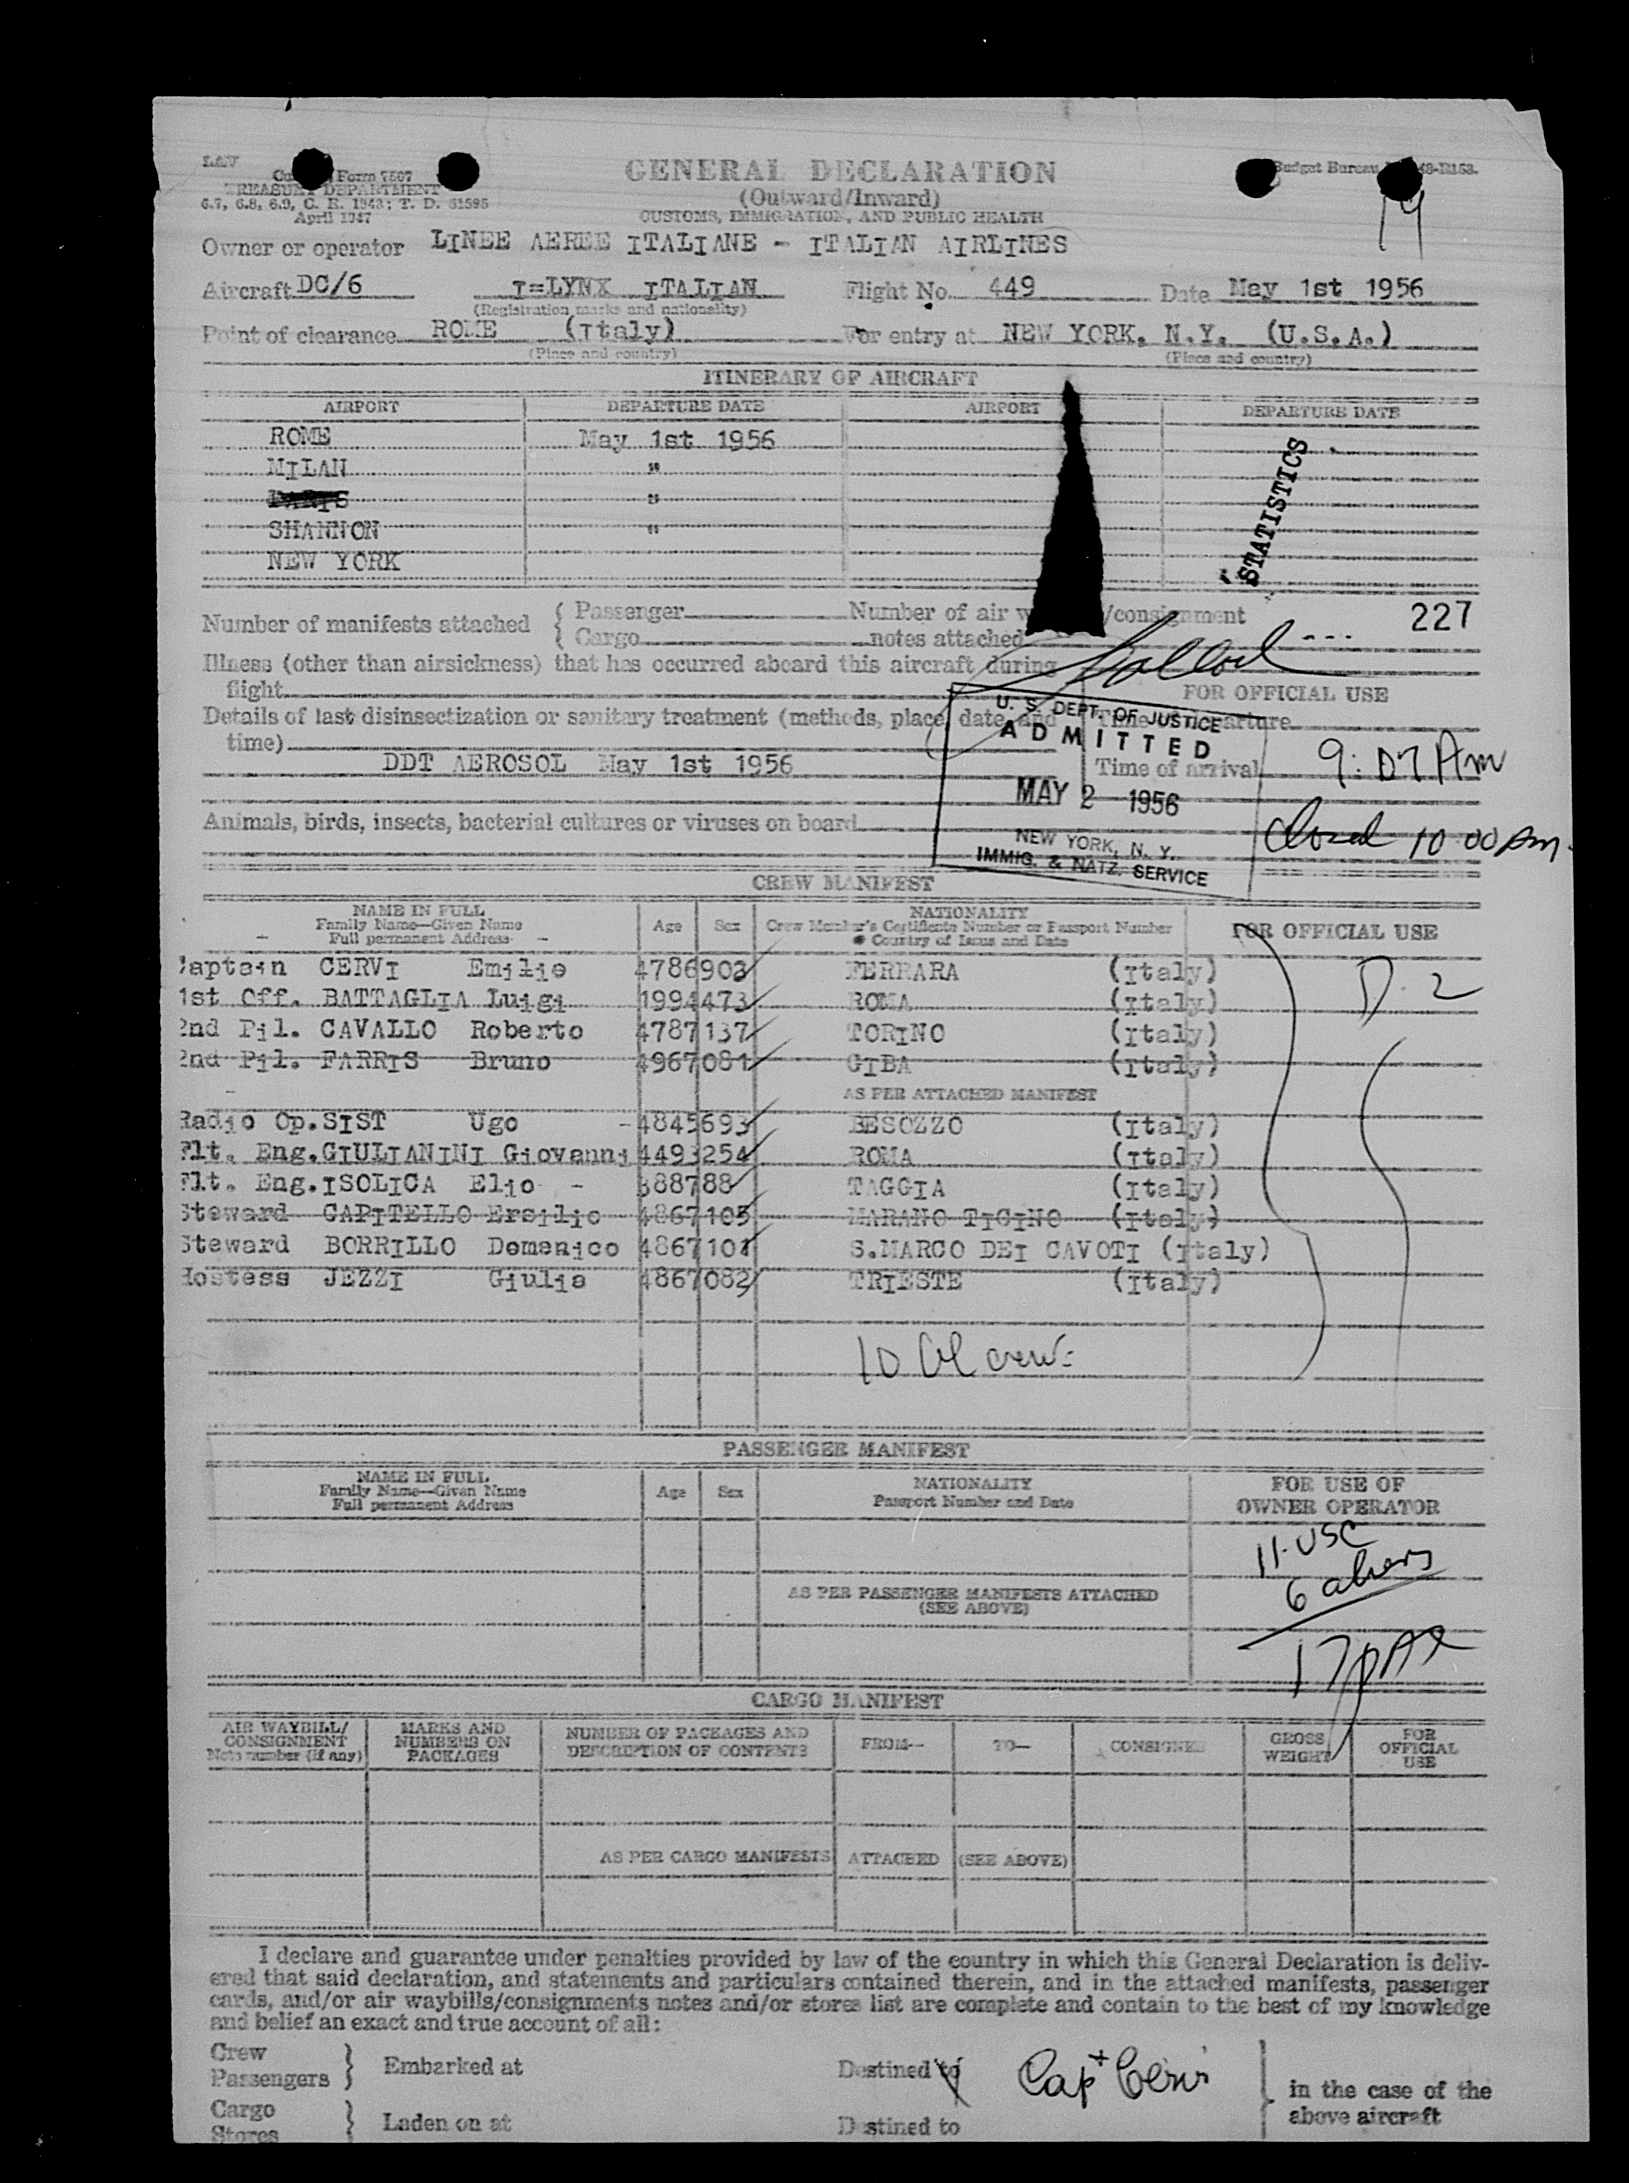 LAW
Form 7507
TREASURY DEPARTMENT
6.7, 6.8, 6.9, C. R. 1943; T. D. 51595
April 1947
GENERAL DECLARATION
(Outward/Inward)
CUSTOMS, IMMIGRATION, AND PUBLIC HEALTH
Budget Bureau 48-R153.
14
Owner or operator LINEE AEREE ITALIANE - ITALIAN AIRLINES
Aircraft DC/6 I=LYNX ITALIAN Flight No. 449 Date May 1st 1956
(Registration marks and nationality)
Point of clearance ROME (Italy) For entry at NEW YORK, N.Y. (U.S.A.)
(Place and country) (Place and country)
ITINERARY OF AIRCRAFT
AIRPORT DEPARTURE DATE AIRPORT DEPARTURE DATE
ROME May 1st 1956
MILAN "
PARIS "
SHANNON "
NEW YORK
STATISTICS
Number of manifests attached { Passenger Number of air /consignment 227
{ Cargo notes attached
Illness (other than airsickness) that has occurred aboard this aircraft during
flight
FOR OFFICIAL USE
Details of last disinsectization or sanitary treatment (methods, place, date, and
time)
DDT AEROSOL May 1st 1956
Time of departure
Time of arrival 9:07 Am
Closed 10:00 Am.
U. S. DEPT. OF JUSTICE
ADMITTED
MAY 2 1956
NEW YORK, N. Y.
IMMIG. & NATZ. SERVICE
Animals, birds, insects, bacterial cultures or viruses on board
CREW MANIFEST
NAME IN FULL
Family Name—Given Name
Full permanent Address
Age Sex
NATIONALITY
Crew Member's Certificate Number or Passport Number
Country of Issue and Date
FOR OFFICIAL USE
Captain CERVI Emilio 4786903 FERRARA (Italy)
D. 2
1st Off. BATTAGLIA Luigi 1994473 ROMA (Italy)
2nd Pil. CAVALLO Roberto 4787137 TORINO (Italy)
2nd Pil. FARRIS Bruno 4967081 GIBA (Italy)
AS PER ATTACHED MANIFEST
Radio Op. SIST Ugo - 4845693 BESOZZO (Italy)
Flt. Eng. GIULIANINI Giovanni 4493254 ROMA (Italy)
Flt. Eng. ISOLICA Elio - 388788 TAGGIA (Italy)
Steward CAPITELLO Ersilio 4867105 MARANO TICINO (Italy)
Steward BORRILLO Domenico 4867101 S.MARCO DEI CAVOTI (Italy)
Hostess JEZZI Giulia 4867082 TRIESTE (Italy)
10 crew
PASSENGER MANIFEST
NAME IN FULL
Family Name—Given Name
Full permanent Address
Age Sex
NATIONALITY
Passport Number and Date
FOR USE OF
OWNER OPERATOR
11-USC
6 aliens
17 pax
AS PER PASSENGER MANIFESTS ATTACHED
(SEE ABOVE)
CARGO MANIFEST
AIR WAYBILL/
CONSIGNMENT
Note number (if any)
MARKS AND
NUMBERS ON
PACKAGES
NUMBER OF PACKAGES AND
DESCRIPTION OF CONTENTS
FROM—
TO—
CONSIGNEE
GROSS
WEIGHT
FOR
OFFICIAL
USE
AS PER CARGO MANIFESTS ATTACHED (SEE ABOVE)
I declare and guarantee under penalties provided by law of the country in which this General Declaration is deliv-
ered that said declaration, and statements and particulars contained therein, and in the attached manifests, passenger
cards, and/or air waybills/consignments notes and/or stores list are complete and contain to the best of my knowledge
and belief an exact and true account of all:
Crew
Passengers } Embarked at Destined to
Capt Cervi
in the case of the
above aircraft
Cargo
Stores } Laden on at Destined to